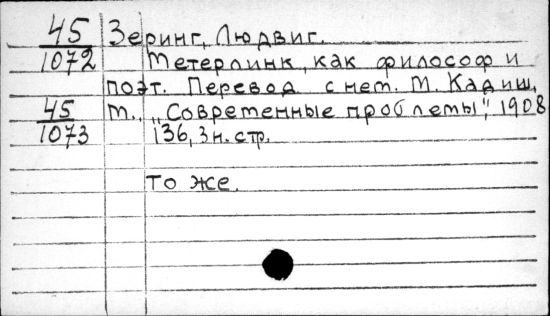 45 Зеринг, Людвиг.
1072 Метерлинк, как философ и
поэт. Перевод с нем. М. Кадиш.
45 М., „Современные проблемы", 1908
1073 136, 3н. стр.
То же.